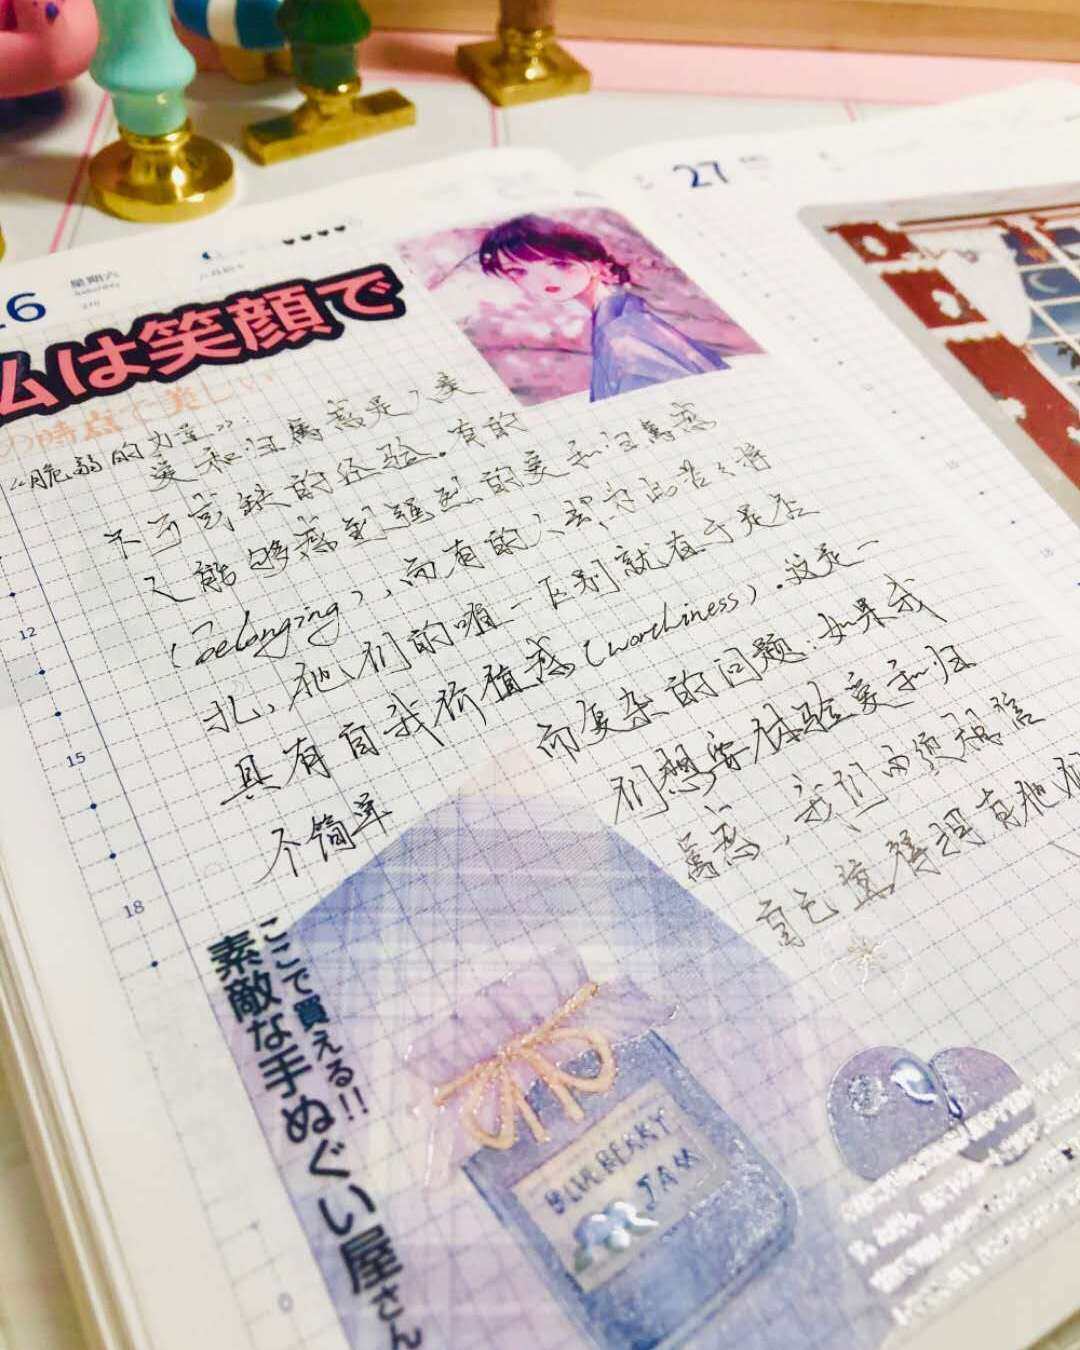 26
星期六
27
ムは笑顔で
の時点で美しい
《脆弱的力量》:
爱和归属感是人类
不可或缺的经验.有的
人能够感到强烈的爱和归属感
(belonging),而有的人却为此苦苦挣
扎,他们的唯一区别就在于是否
具有自我价值感(worthiness).这是一
个简单而复杂的问题:如果我
们想要体验爱和归
属感,我们必须相信
自己值得拥有他们
12
15
18
18
ここで買える!!
素敵な手ぬぐい屋さん
BLUEBERRY
JAM
0